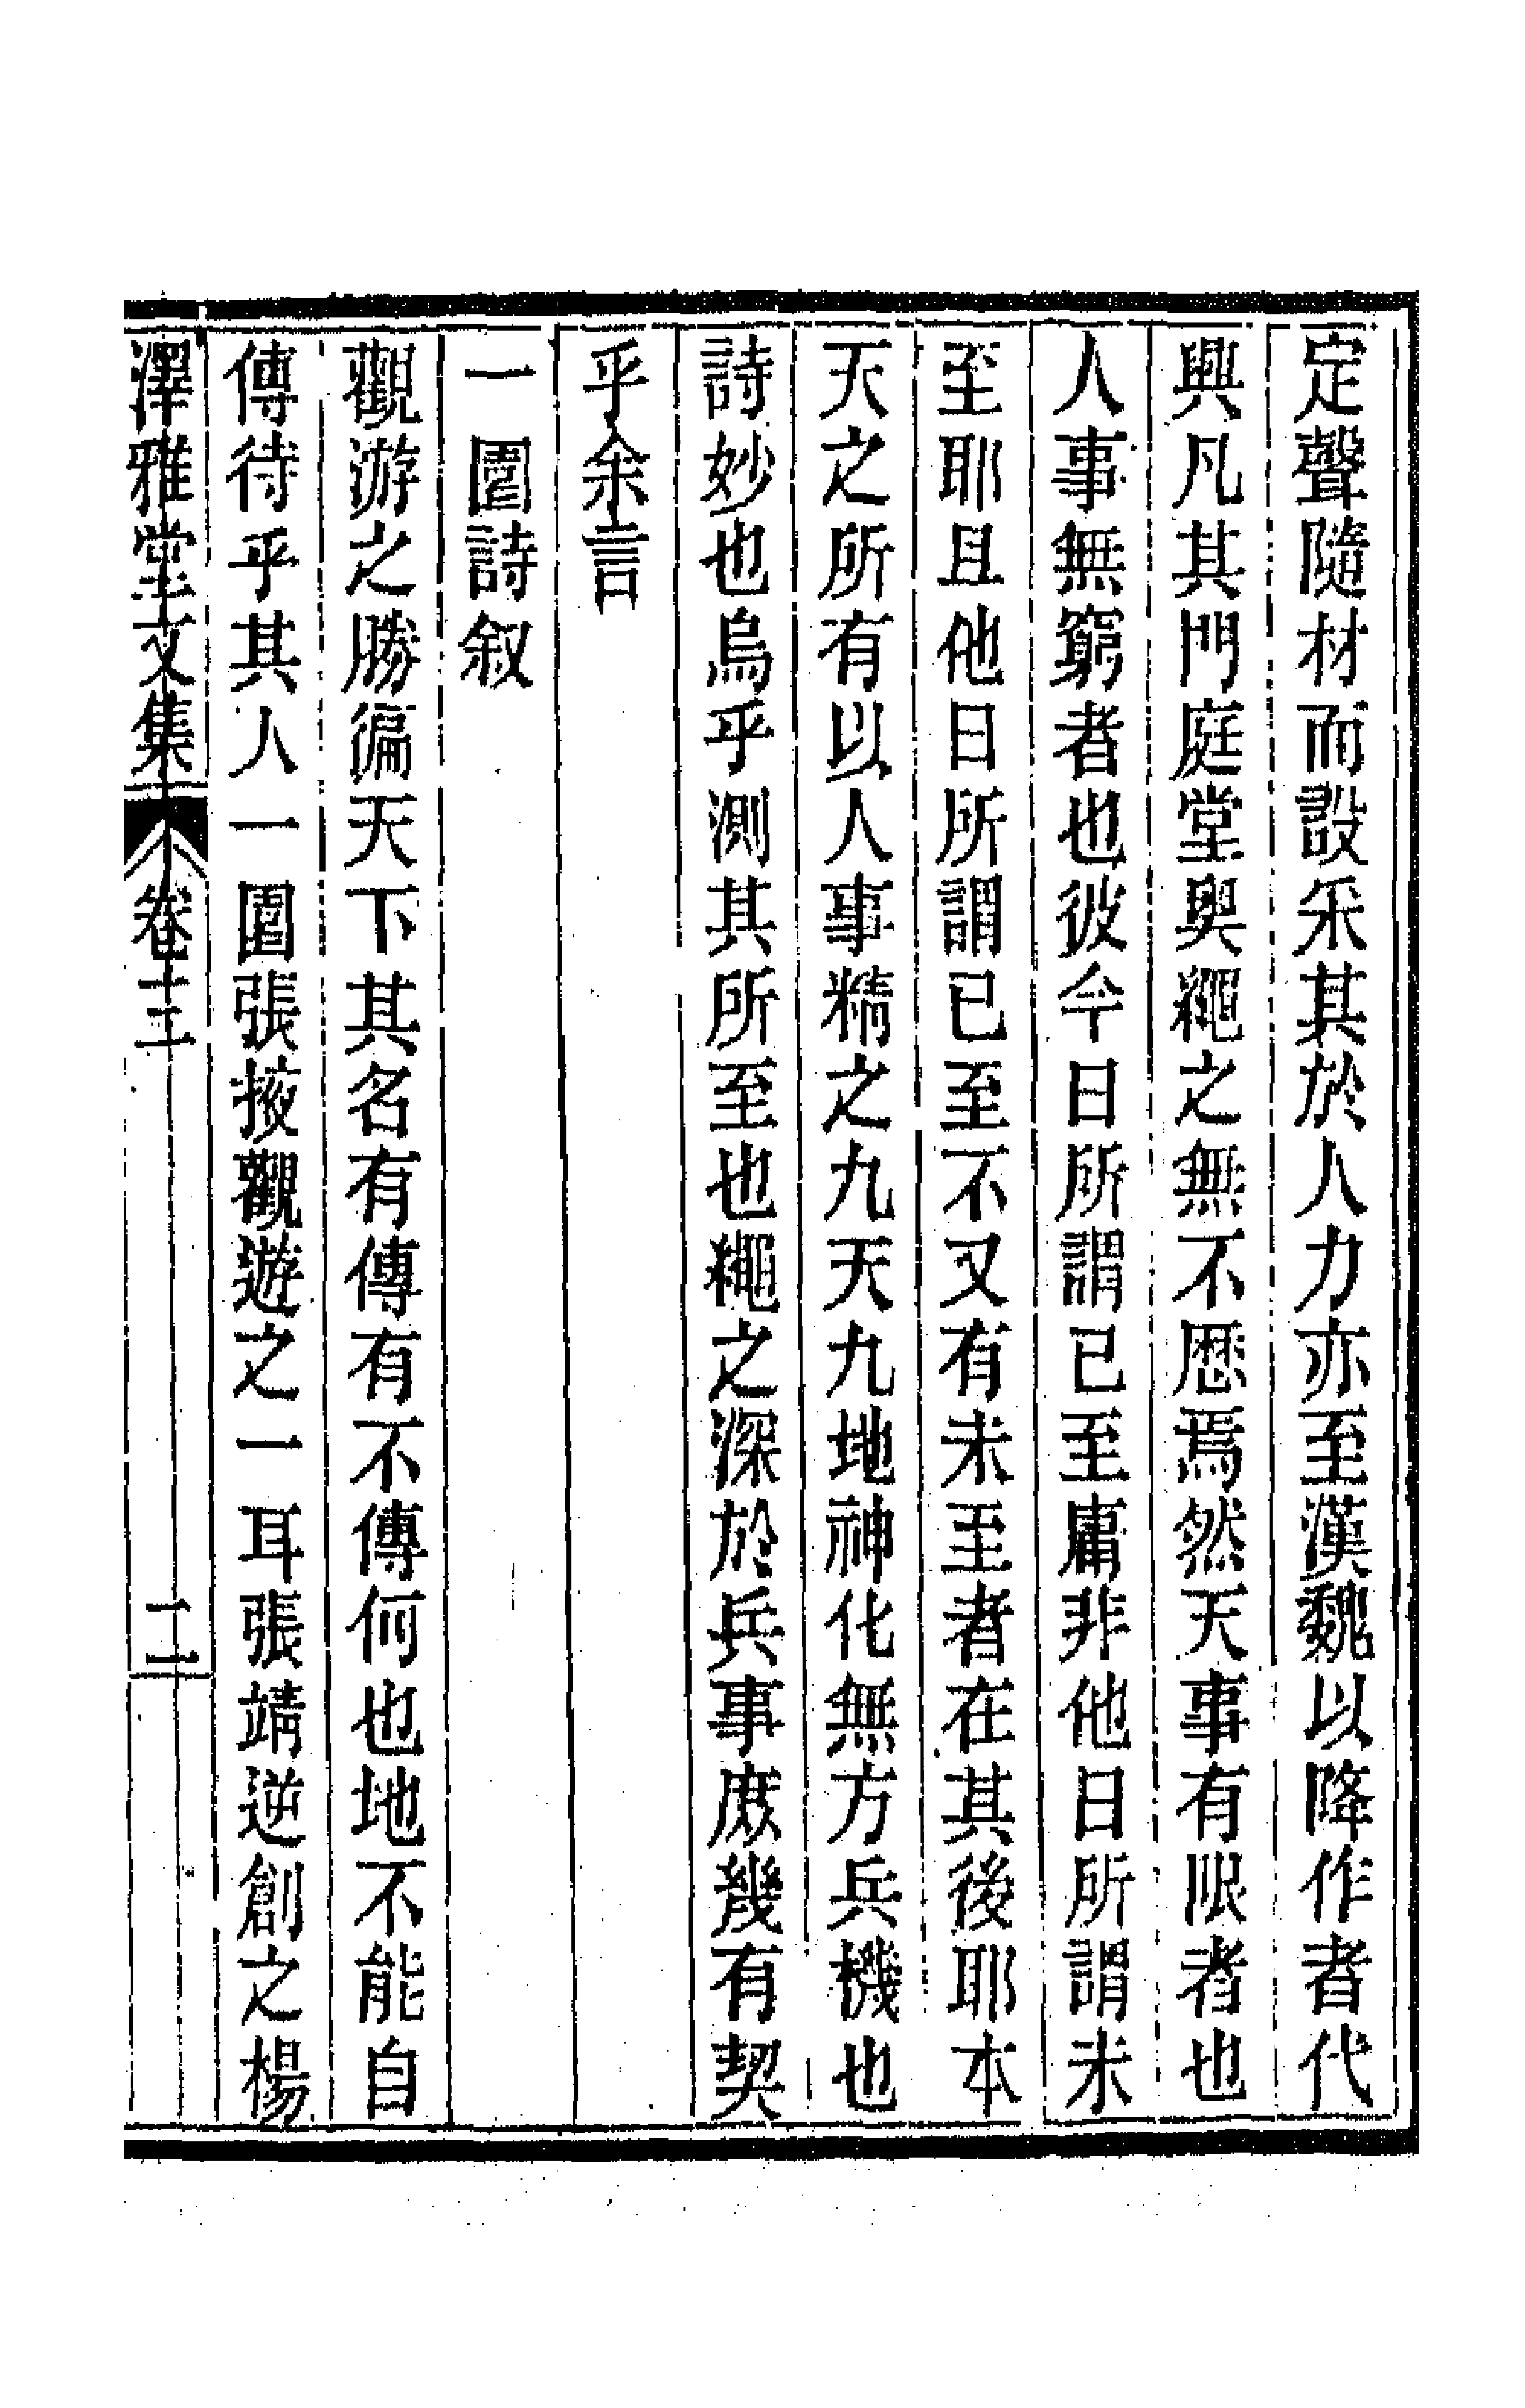 定聲隨材而設采其於人力亦至漢魏以降作者代
興凡其門庭堂奧繩之無不歴焉然天事有限者也
人事無窮者也彼今日所謂已至庸非他日所謂未
至耶且他日所謂已至不又有未至者在其後耶本
天之所有以人事精之九天九地神化無方兵機也
詩妙也烏乎測其所至也繩之深於兵事庶幾有契
乎余言
一圍詩叙
觀游之勝徧天下其名有傳有不傳何也地不能自
傳待乎其人一圍張掖觀遊之一耳張靖逆創之楊
澤雅堂文集 卷三 二